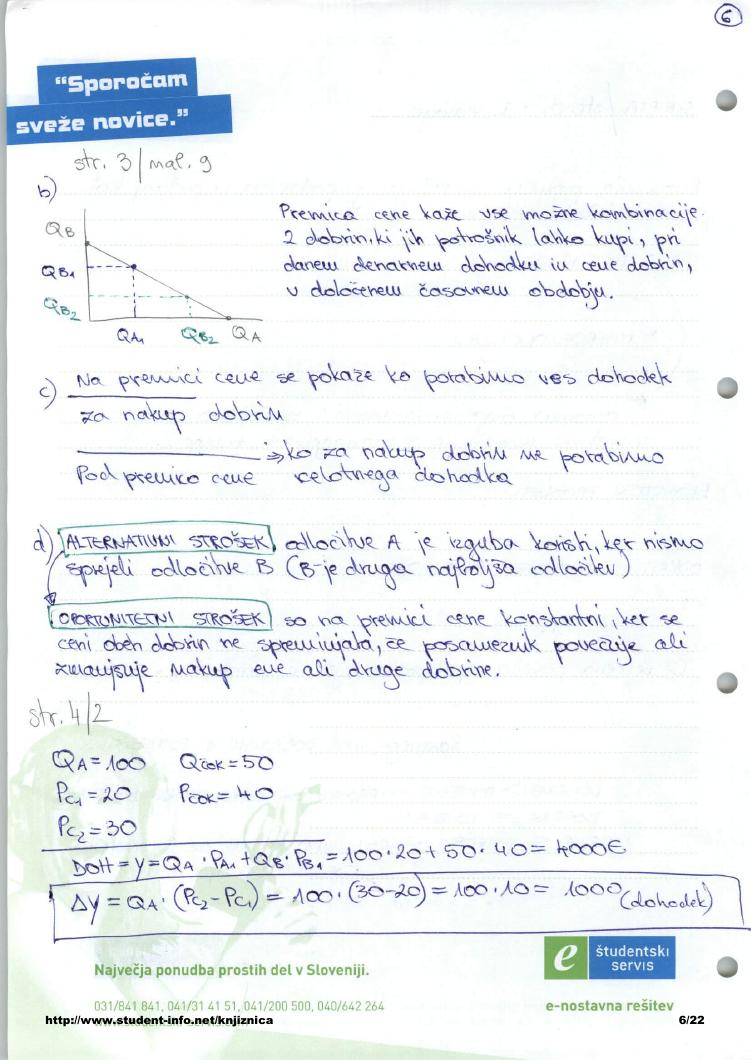 6
“Sporočam
sveže novice.”
str. 3 / nal. 9
b)
QB
QB1
QB2
QA1
QB2
QA
Premica cene kaže vse možne kombinacije
2 dobrin, ki jih potrošnik lahko kupi, pri
danem denarnem dohodku in cene dobrin,
v določenem časovnem obdobju.
c) Na premici cene se pokaže ko porabimo ves dohodek
za nakup dobrin
Pod premico cene => ko za nakup dobrin ne porabimo
celotnega dohodka
d) ALTERNATIVNI STROŠEK odločitve A je izguba koristi, ker nismo
sprejeli odločitve B (B-je druga najboljša odločitev)
OPORTUNITETNI STROŠEK so na premici cene konstantni, ker se
ceni obeh dobrin ne spreminjata, če posameznik povečuje ali
zmanjšuje nakup ene ali druge dobrine.
str. 4/2
QA = 100 QČOK = 50
PC1 = 20 PČOK = 40
PC2 = 30
DOH = y = QA · PA1 + QB · PB1 = 100 · 20 + 50 · 40 = 4000€
Δy = QA · (PC2 - PC1) = 100 · (30-20) = 100 · 10 = 1000 (dohodek)
Največja ponudba prostih del v Sloveniji.
031/841 841, 041/31 41 51, 041/200 500, 040/642 264
e študentski
servis
e-nostavna rešitev
http://www.student-info.net/knjiznica
6/22